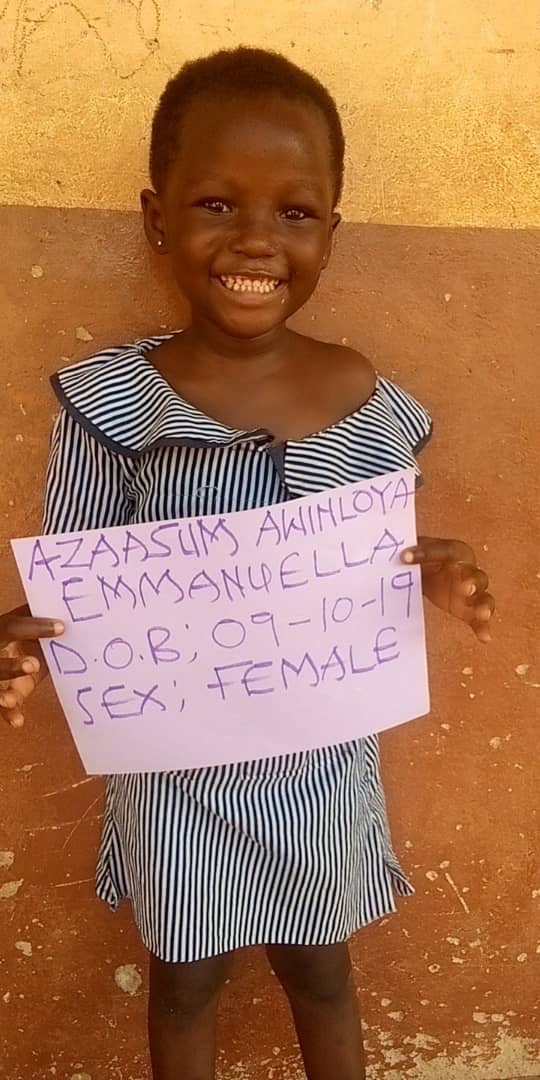 AZAASUM AWINLOYA
EMMANUELLA
D.O.B; 09-10-19
SEX; FEMALE